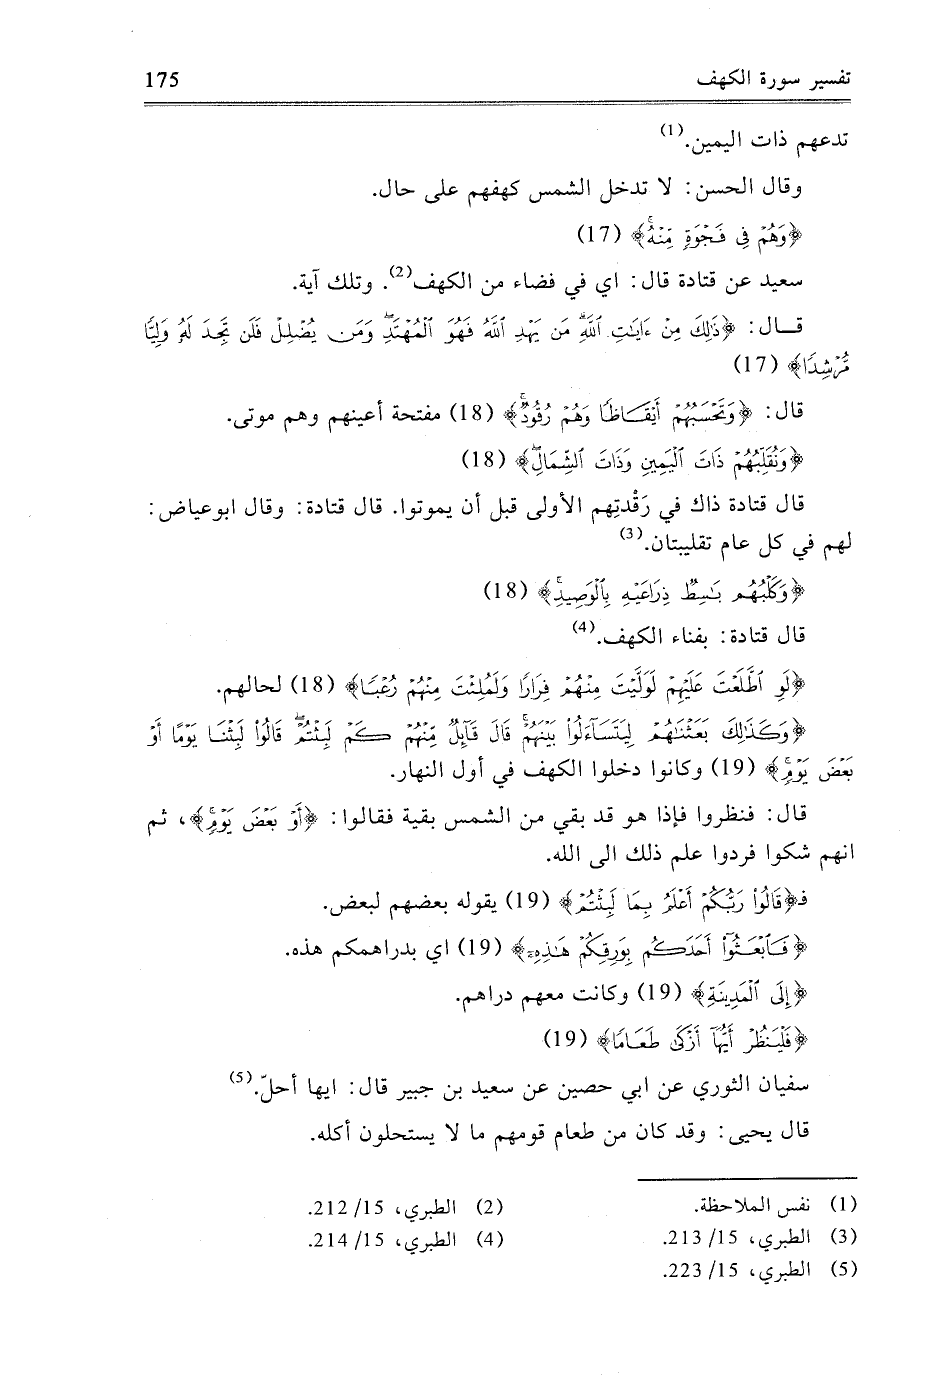 تفسير سورة الكهف 175
تدعهم ذات اليمين.(1)
وقال الحسن: لا تدخل الشمس كهفهم على حال.
﴿وَهُمْ فِي فَجْوَةٍ مِّنْهُ﴾ (17)
سعيد عن قتادة قال: اي في فضاء من الكهف(2). وتلك آية.
قــال: ﴿ذَٰلِكَ مِنْ ءَايَٰتِ ٱللَّهِ مَن يَهْدِ ٱللَّهُ فَهُوَ ٱلْمُهْتَدِ وَمَن يُضْلِلْ فَلَن تَجِدَ لَهُۥ وَلِيًّا
مُّرْشِدًا﴾ (17)
قال: ﴿وَتَحْسَبُهُمْ أَيْقَاظًا وَهُمْ رُقُودٌ﴾ (18) مفتحة أعينهم وهم موتى.
﴿وَنُقَلِّبُهُمْ ذَاتَ ٱلْيَمِينِ وَذَاتَ ٱلشِّمَالِ﴾ (18)
قال قتادة ذاك في رَقْدتِهم الأولى قبل أن يموتوا. قال قتادة: وقال ابوعياض:
لهم في كل عام تقليبتان.(3)
﴿وَكَلْبُهُم بَٰسِطٌ ذِرَاعَيْهِ بِٱلْوَصِيدِ﴾ (18)
قال قتادة: بفناء الكهف.(4)
﴿لَوِ ٱطَّلَعْتَ عَلَيْهِمْ لَوَلَّيْتَ مِنْهُمْ فِرَارًا وَلَمُلِئْتَ مِنْهُمْ رُعْبًا﴾ (18) لحالهم.
﴿وَكَذَٰلِكَ بَعَثْنَٰهُمْ لِيَتَسَآءَلُوا۟ بَيْنَهُمْ قَالَ قَآئِلٌ مِّنْهُمْ كَمْ لَبِثْتُمْ قَالُوا۟ لَبِثْنَا يَوْمًا أَوْ
بَعْضَ يَوْمٍ﴾ (19) وكانوا دخلوا الكهف في أول النهار.
قال: فنظروا فإذا هو قد بقي من الشمس بقية فقالوا: ﴿أَوْ بَعْضَ يَوْمٍ﴾، ثم
انهم شكوا فردوا علم ذلك الى الله.
فـ﴿قَالُوا۟ رَبُّكُمْ أَعْلَمُ بِمَا لَبِثْتُمْ﴾ (19) يقوله بعضهم لبعض.
﴿فَٱبْعَثُوٓا۟ أَحَدَكُم بِوَرِقِكُمْ هَٰذِهِۦٓ﴾ (19) اي بدراهمكم هذه.
﴿إِلَى ٱلْمَدِينَةِ﴾ (19) وكانت معهم دراهم.
﴿فَلْيَنظُرْ أَيُّهَآ أَزْكَىٰ طَعَامًا﴾ (19)
سفيان الثوري عن ابي حصين عن سعيد بن جبير قال: ايها أحلّ.(5)
قال يحيى: وقد كان من طعام قومهم ما لا يستحلون أكله.
(1) نفس الملاحظة. (2) الطبري، 15/ 212.
(3) الطبري، 15/ 213. (4) الطبري، 15/ 214.
(5) الطبري، 15/ 223.